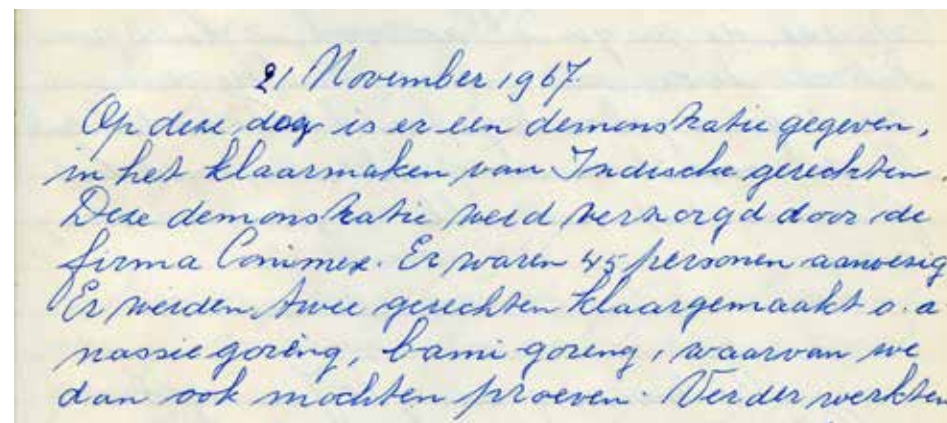 21 November 1967.
Op deze dag is er een demonstratie gegeven,
in het klaarmaken van Indische gerechten.
Deze demonstratie werd verzorgd door de
firma Conimex. Er waren 45 personen aanwesig
Er werden twee gerechten klaargemaakt o.a
nassie goreng, bami goreng, waarvan we
dan ook mochten proeven. Verder werkten